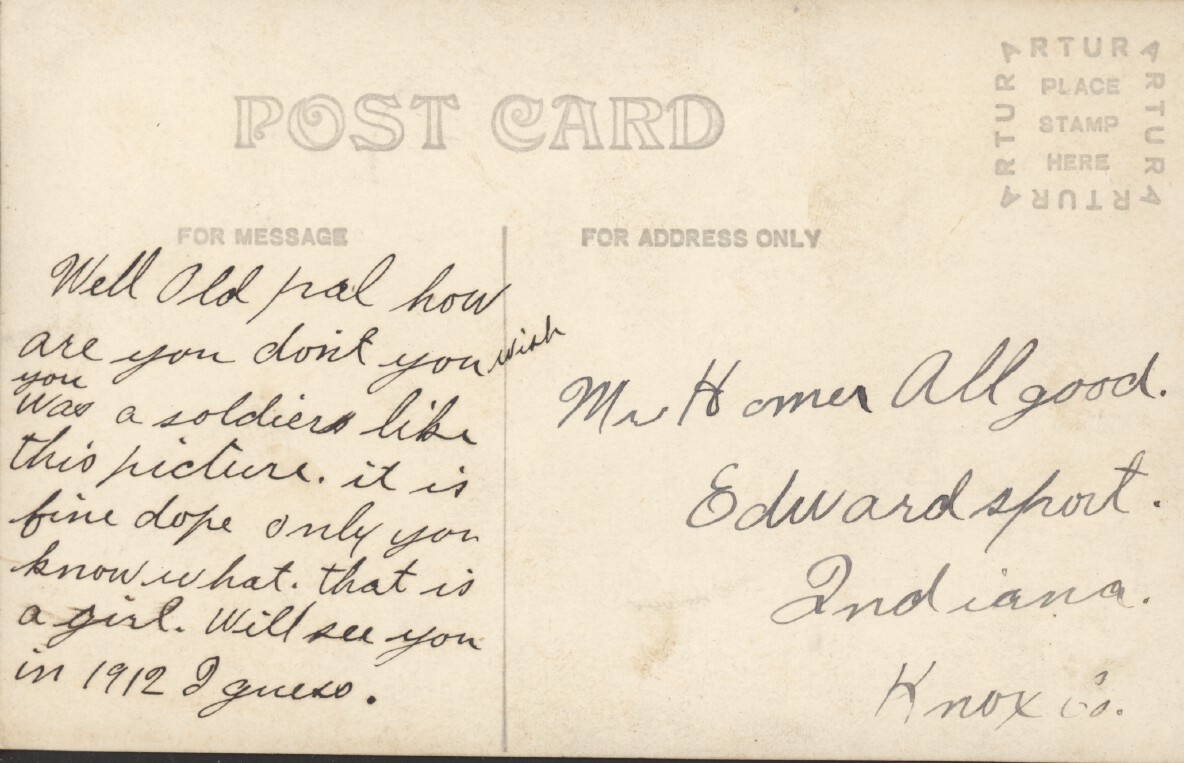 POST CARD
ARTURA
ARTURA
ARTURA
ARTURA
PLACE
STAMP
HERE
FOR MESSAGE
Well Old pal how
are you don't you wish
you
was a soldiers like
this picture. it is
fine dope only you
know what. that is
a girl. Will see you
in 1912 I guess.
FOR ADDRESS ONLY
Mr Homer Allgood.
Edwardsport.
Indiana.
Knox Co.